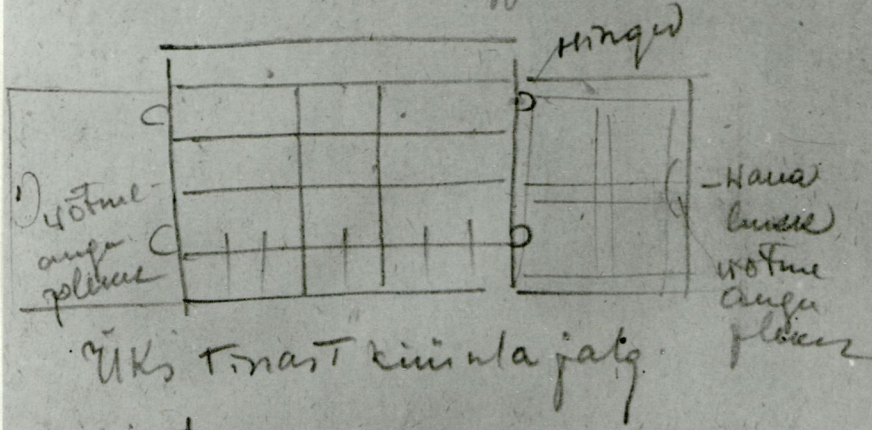 Hinged
võtme-
augu
plekk
Vana
lukk
võtme
augu
plekk
Üks tinast küünla jalg.